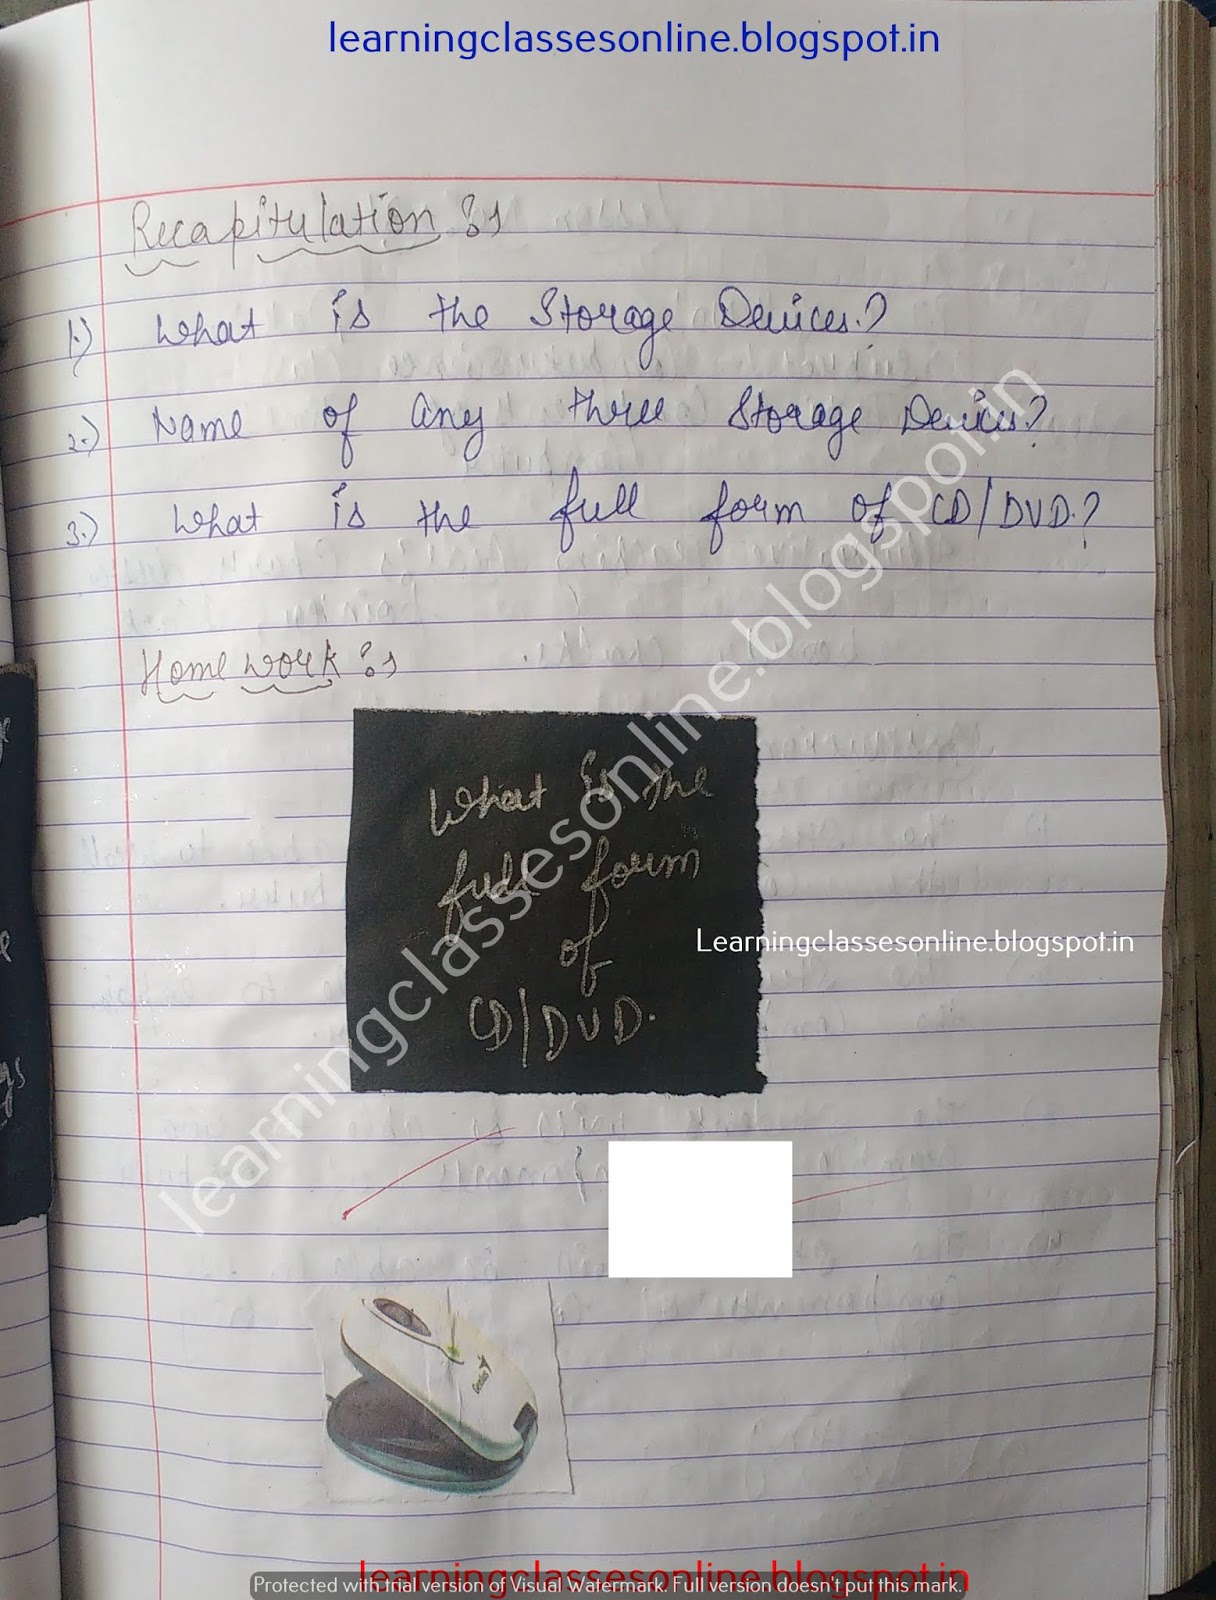 learningclassesonline.blogspot.in
Recapitulation :-
1.) What is the Storage Devices.?
2.) Name of any three Storage Devices?
3.) What is the full form of CD/DVD.?
Home work :-
What is the
full form
of
CD/DVD.
Learningclassesonline.blogspot.in
learningclassesonline.blogspot.in
Genius
learningclassesonline.blogspot.in
Protected with trial version of Visual Watermark. Full version doesn't put this mark.